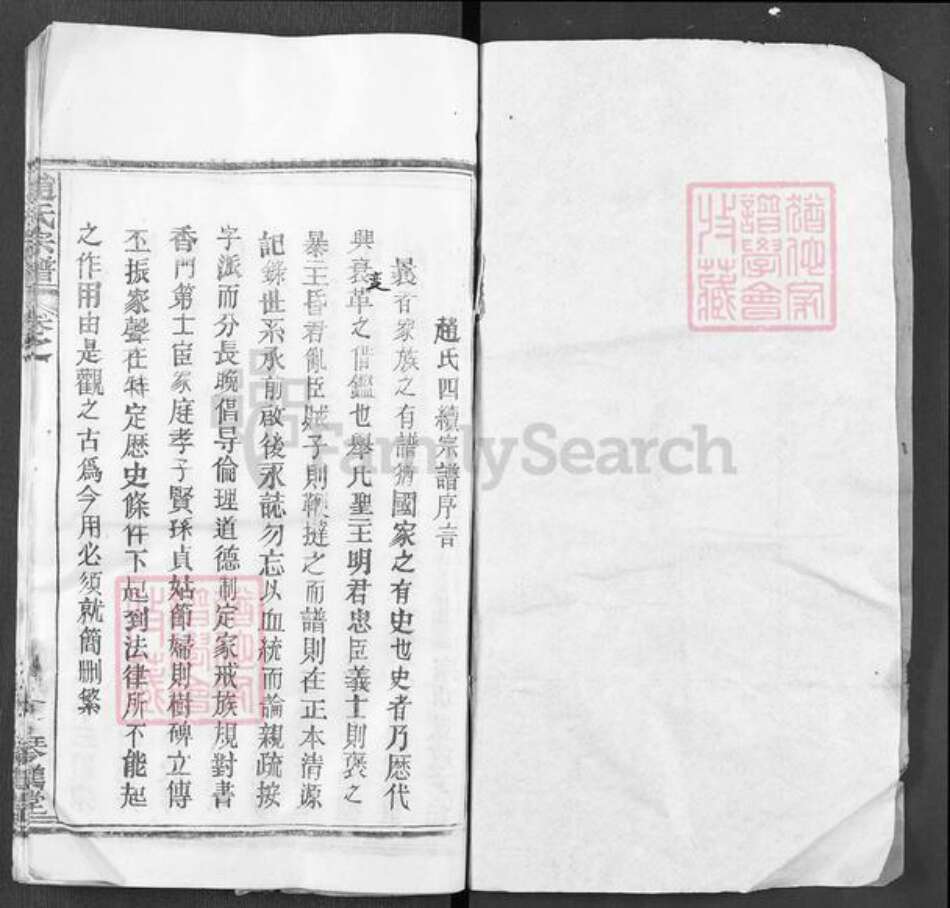 趙氏四續宗譜序言
曩者家族之有譜猶國家之有史也史者乃歷代
興衰變革之借鑑也舉凡聖王明君忠臣義士則褒之
暴王昏君亂臣賊子則鞭撻之而譜則在正本清源
記錄世系承前啟後永誌勿忘以血統而論親疏按
字派而分長晚倡导倫理道德制定家戒族規對書
香門第士宦家庭孝子賢孫貞姑節婦則樹碑立傳
丕振家聲在特定歷史條件下起到法律所不能起
之作用由是觀之古爲今用必須就簡刪繁
趙氏宗譜
卷之
堂
譜學會
收藏
FamilySearch